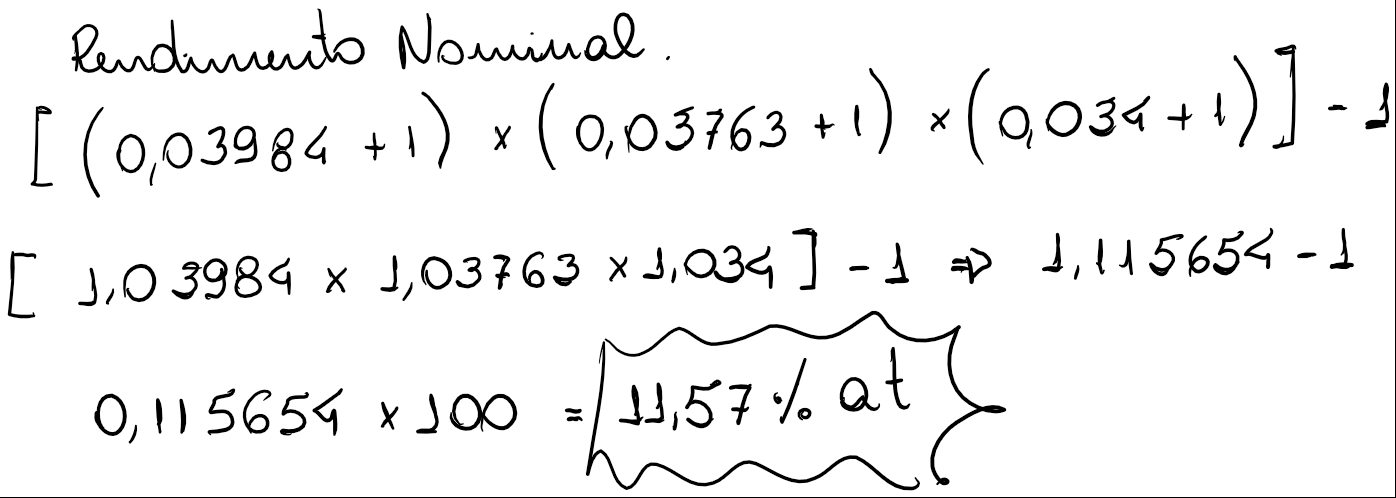 Rendimento Nominal.
[(0,03984 + 1) x (0,03763 + 1) x (0,034 + 1)] - 1
[1,03984 x 1,03763 x 1,034] - 1 => 1,115654 - 1
0,115654 x 100 = 11,57 % at